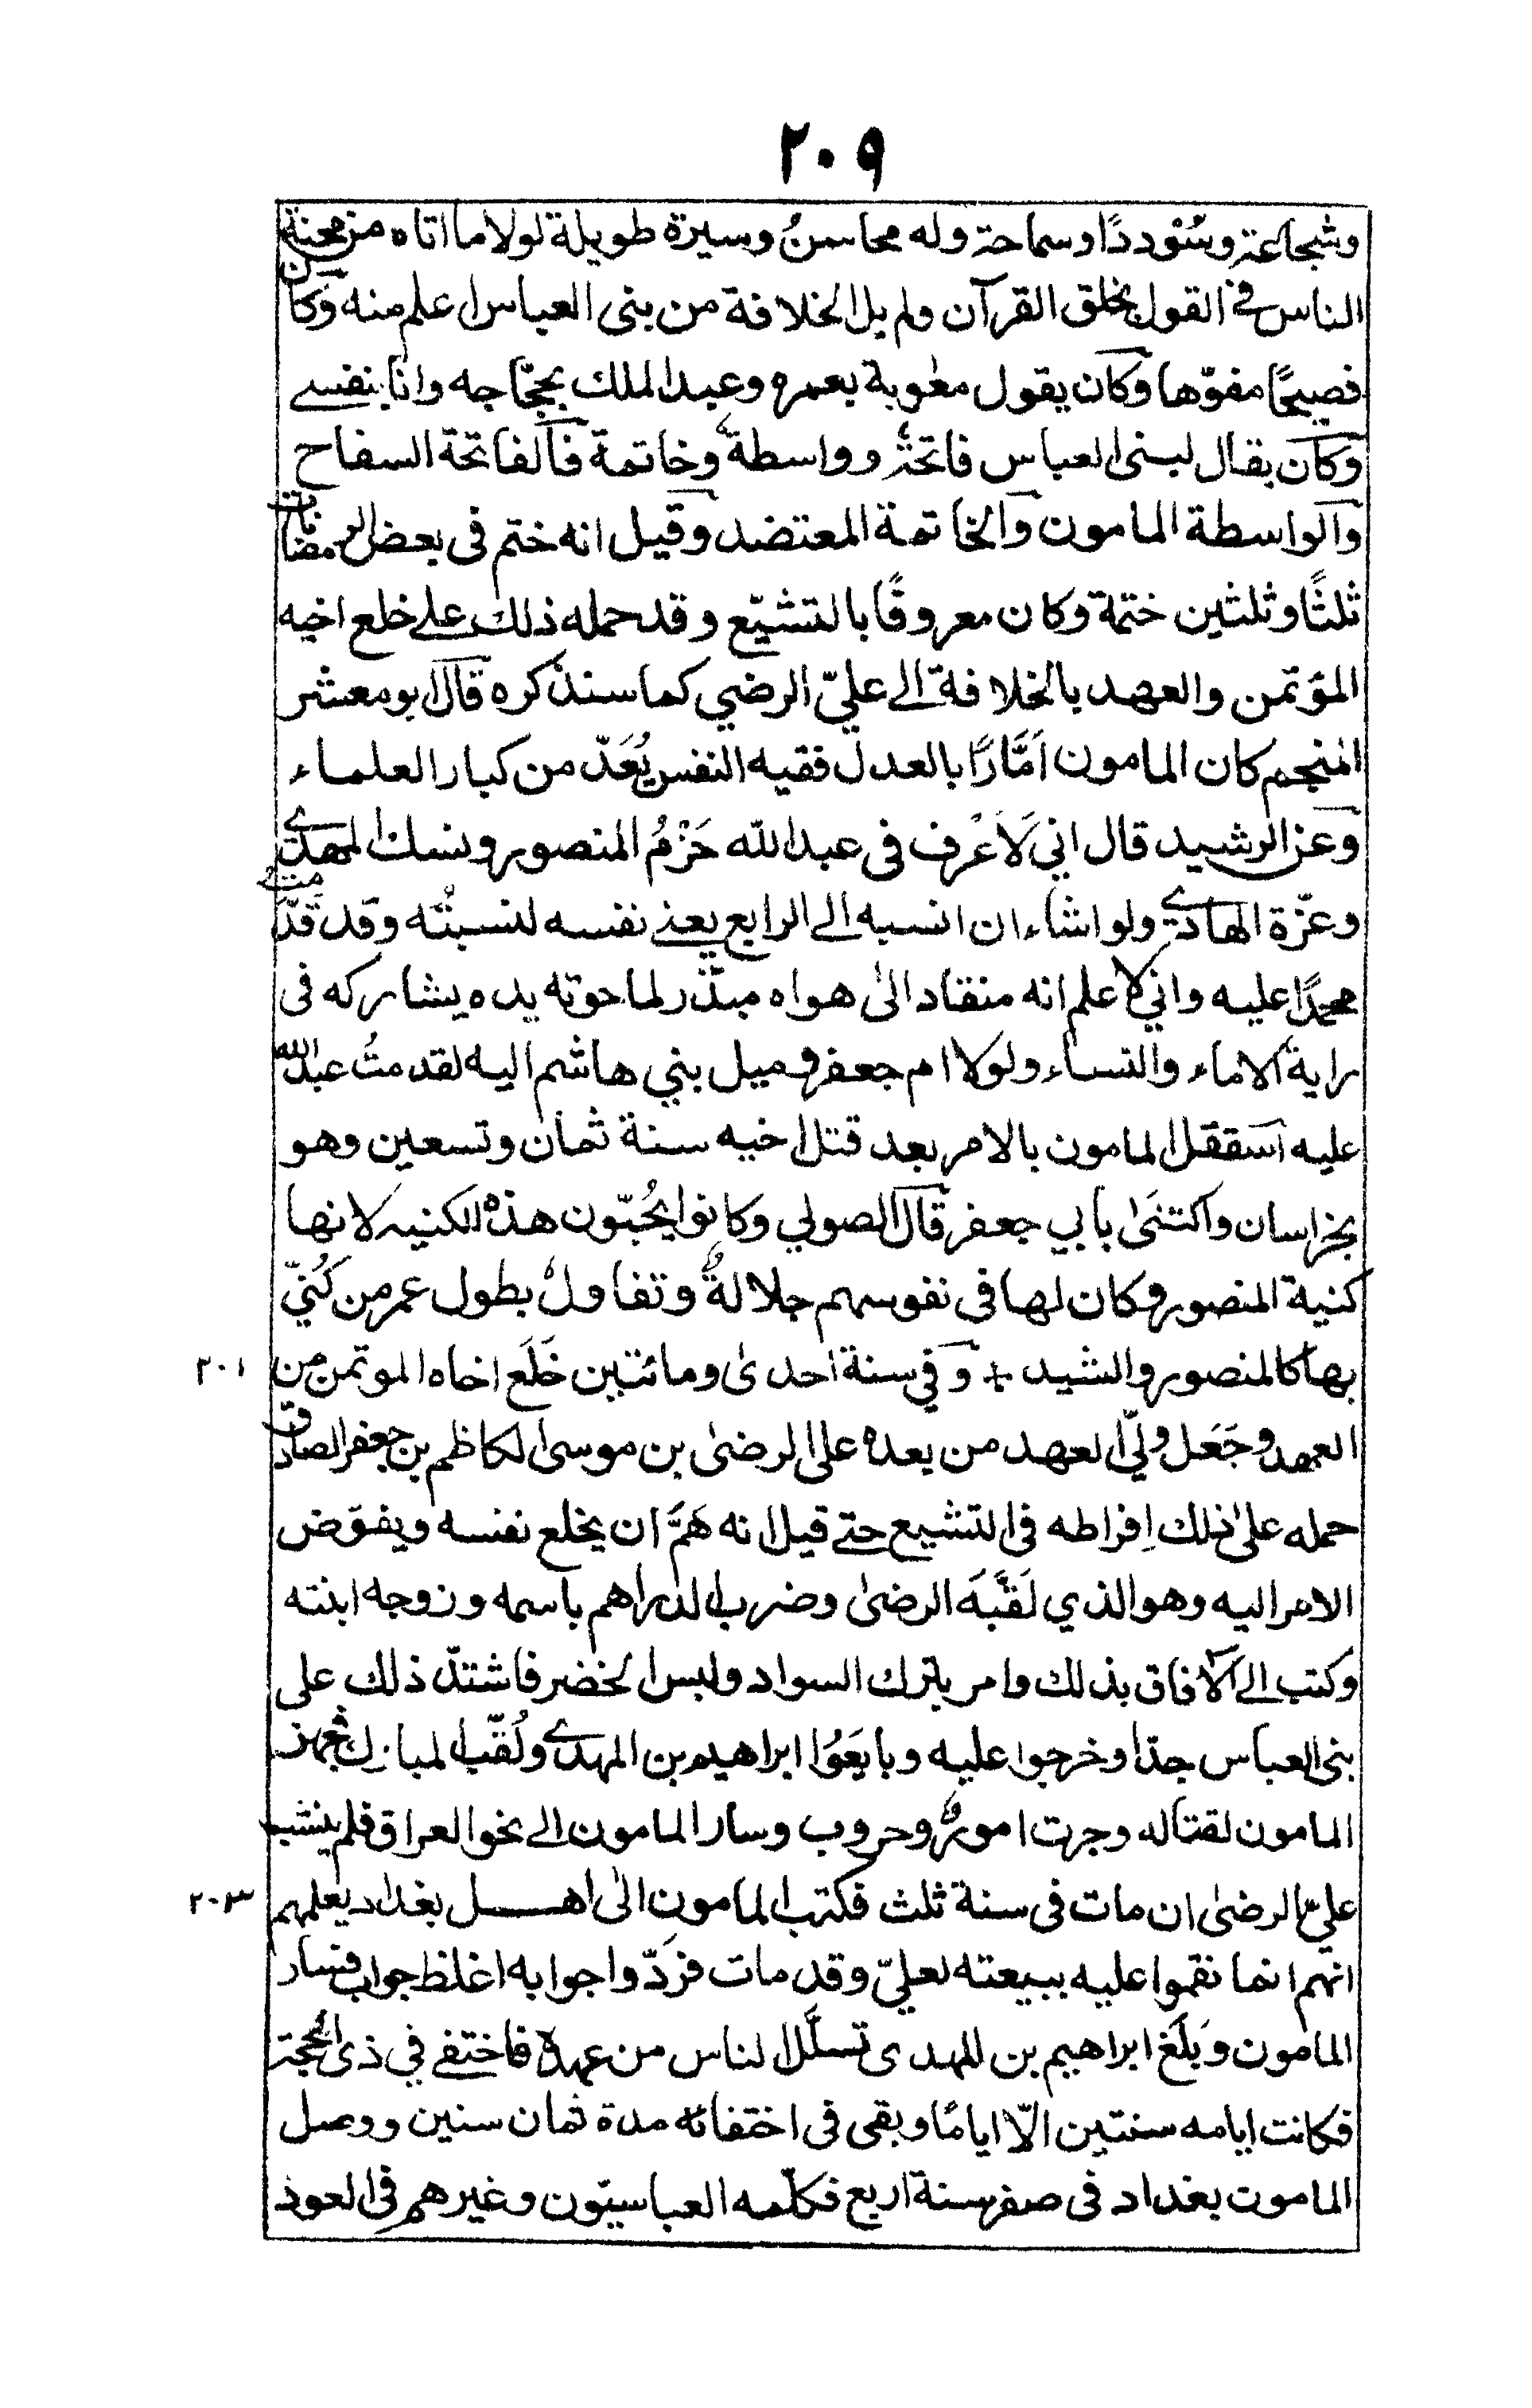 ٢٠٩
وشجاعة وسُؤددًا وسماحة وله محاسنُ وسيرة طويلة لولا ما اتاه من محنة
الناس في القول بخلق القرآن ولم يل الخلافة من بنى العباس اعلم منه وكان
فصيحًا مفوّها وكان يقول معٰوية بعمره وعبد الملك بحجّاجه وانا بنفسے
وكان يقال لبنى العباس فاتحةٌ وواسطةٌ وخاتمة فالفاتحة السفاح
والواسطة المامون والخاتمة المعتضد وقيل انه ختم فى بعض الرمضانات
ثلثًا وثلثين ختمة وكان معروفًا بالتشيّع وقد حمله ذلك علے خلع اخيه
المؤتمن والعهد بالخلافة الے عليّ الرضي كما سنذكره قال ابو معشر
المنجم كان المامون اَمَّارًا بالعدل فقيه النفس يُعَدّ من كبار العلماء
وعن الرشيد قال اني لَاَعْرف فى عبد الله حَزْمُ المنصور ونسك المهدے
وعزّة الهادے ولو اشاء ان انسبه الے الرابع يعنے نفسه لنسبتُه وقد قدّمتُ
محمدًا عليه واني لاعلم انه منقاد الىٰ هواه مبذّر لما حوته يده يشاركه فى
رايه الاماء والنساء ولولا ام جعفر وميل بني هاشم اليه لقدمتُ عبد الله
عليه استقل المامون بالامر بعد قتل اخيه سنة ثمان وتسعين وهو
بخراسان واكتنَىٰ بابي جعفر قال الصولي وكانوا يُحبّون هذه الكنيه لانها
كنية المنصور وكان لها فى نفوسهم جلالةٌ وتفاولٌ بطول عمر من كُنيّ
بها كالمنصور والشيد + وفي سنة احدىٰ ومائتين خَلَع اخاه الموتمن من ٢٠١
العهد وجَعَل وليّ العهد من بعده على الرضىٰ بن موسى الكاظم بن جعفر الصادق
حمله علىٰ ذلك اِفراطه فى التشيع حتے قيل انه هَمَّ ان يخلع نفسه ويفوّض
الامر اليه وهو الذي لَقَّبَه الرضىٰ وضرب الدراهم باسمه وزوجه ابنته
وكتب الے الآفاق بذلك وامر بترك السواد ولبس الخضر فاشتدّ ذلك على
بنى العباس جدّا وخرجوا عليه وبايَعُوا ابراهيم بن المهدے ولُقّب المبارك فجهز
المامون لقتاله وجرت امورٌ وحروب وسار المامون الے نحو العراق فلم ينشب
عليّ الرضىٰ ان مات فى سنة ثلث فكتب المامون الىٰ اهل بغداد يعلمهم ٢٠٣
انهم انما نقموا عليه ببيعته لعليّ وقد مات فرَدّوا جوابه اغلظ جواب فسار
المامون وبَلَغ ابراهيم بن المهدى تسلَّل الناس من عهده فاختفے في ذى الحجة
فكانت ايامه سنتين الّا ايامًا وبقى فى اختفائه مدة ثمان سنين ووصل
المامون بغداد فى صفر سنة اربع فكلّمه العباسيّون وغيرهم فى العود